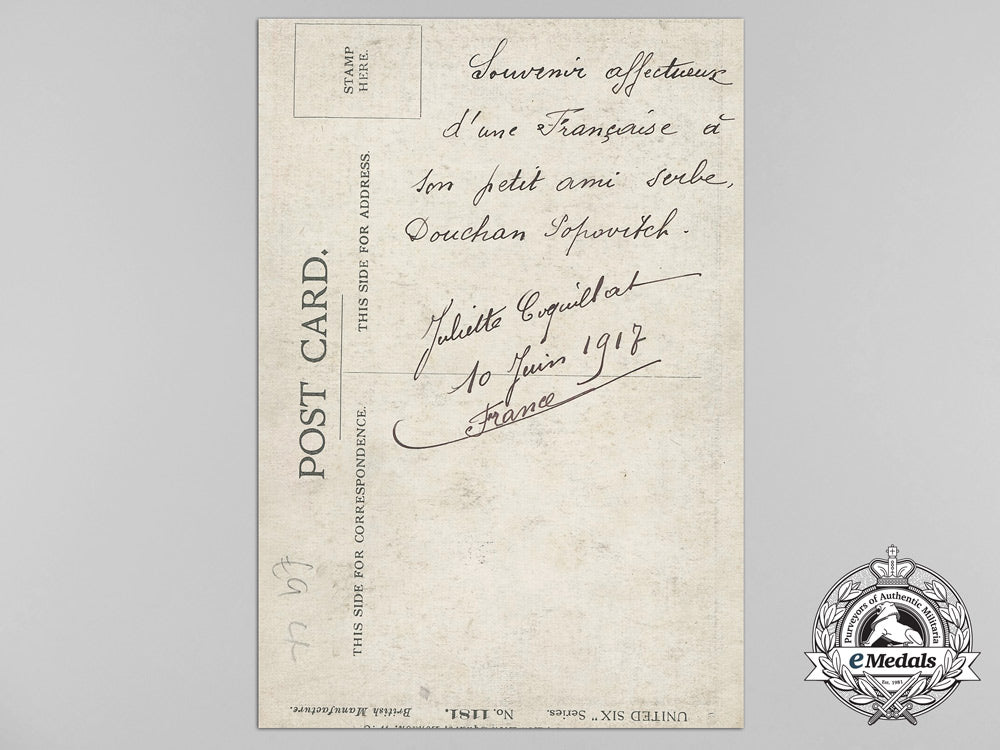 STAMP
HERE.
Souvenir affectueux
d'une Française à
son petit ami serbe,
Douchan Sopovitch.
Juliette Coquillat
10 Juin 1917
France
POST CARD.
THIS SIDE FOR ADDRESS.
THIS SIDE FOR CORRESPONDENCE.
UNITED SIX" Series.
No. 1181.
British Manufacture.
Purveyors of Authentic Militaria
eMedals
Est. 1981